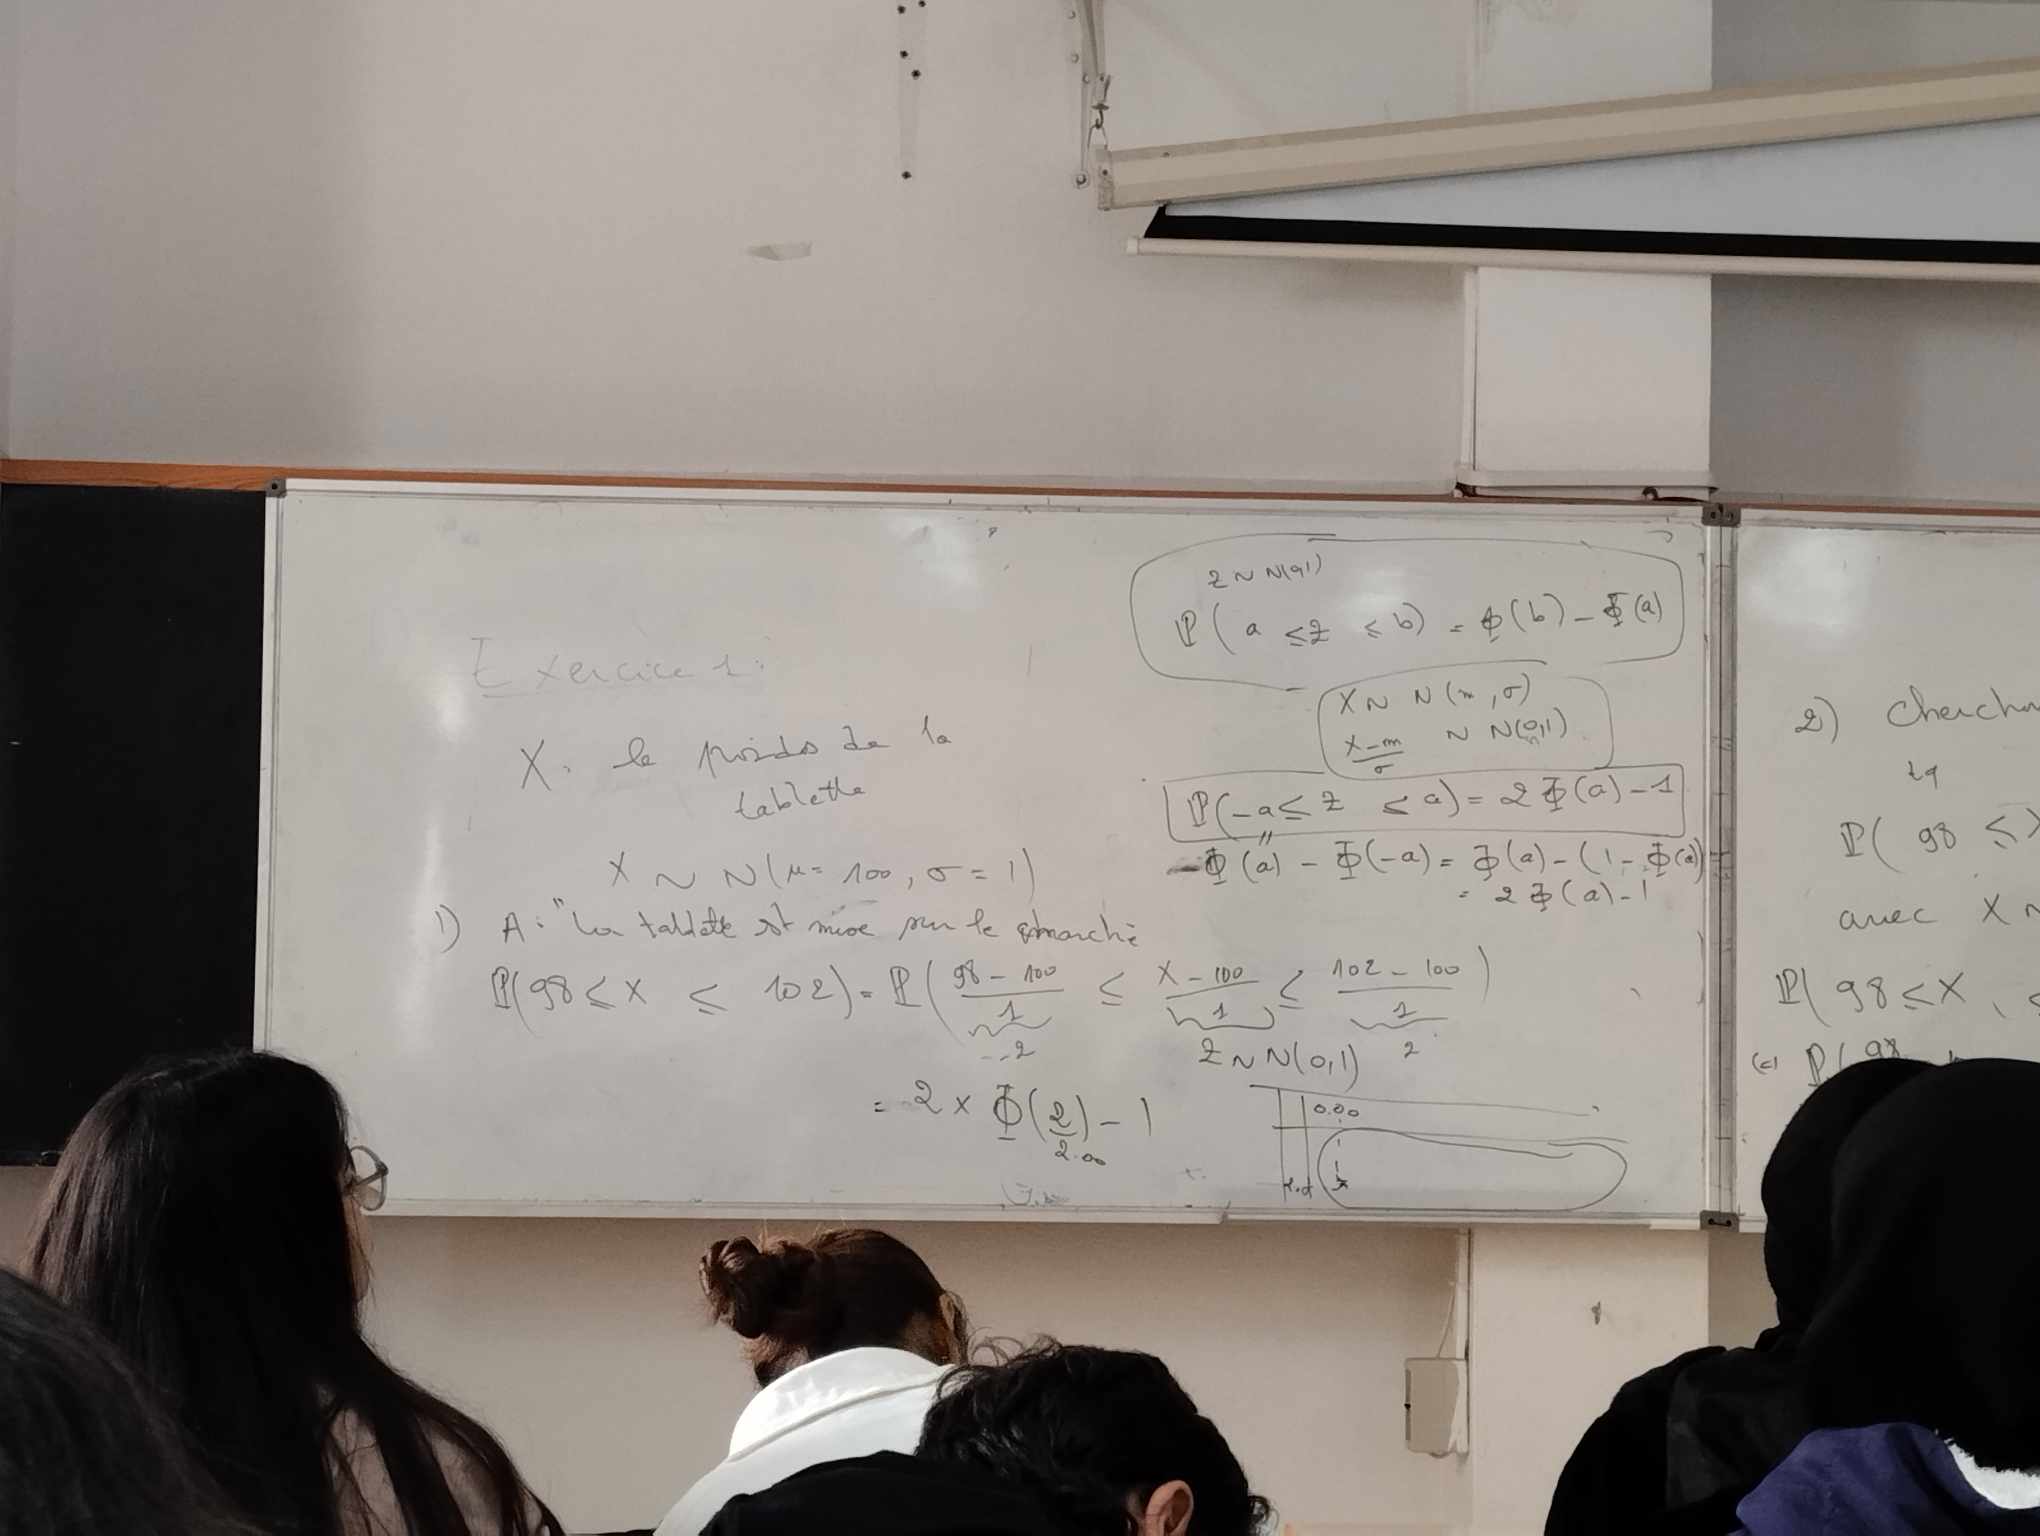 Exercice 1:
X: le poids de la
tablette
X ~ N(μ = 100, σ = 1)
1) A: "La tablette est mise sur le marché
P(98 ≤ X ≤ 102) = P( (98 - 100)/1 ≤ (X - 100)/1 ≤ (102 - 100)/1 )
-2 Z ~ N(0,1) 2
= 2 × Φ(2) - 1
2.00
0.00
Z ~ N(0,1)
P(a ≤ Z ≤ b) = Φ(b) - Φ(a)
X ~ N(m, σ)
(X - m)/σ ~ N(0,1)
P(-a ≤ Z ≤ a) = 2Φ(a) - 1
Φ(a) - Φ(-a) = Φ(a) - (1 - Φ(a)
= 2Φ(a) - 1
2) Cherch
tq
P( 98 ≤ X
avec X ~
P( 98 ≤ X
P( 98